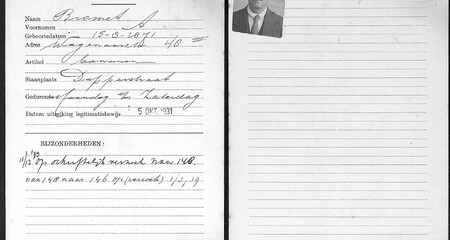 Naam Bromet A
Voornamen
Geboortedatum 15-3-1871
Adres Wagenaarstr 48 III
Artikel bananen
Staanplaats Dapperstraat
Gedurende Maandag t/m Zaterdag
Datum uitrijking legitimatiebewijs 5 OKT. 1931
BIJZONDERHEDEN:
op schriftelijk verzoek naar 148
van 148 naar 146 op (verzoek) 1/3 39